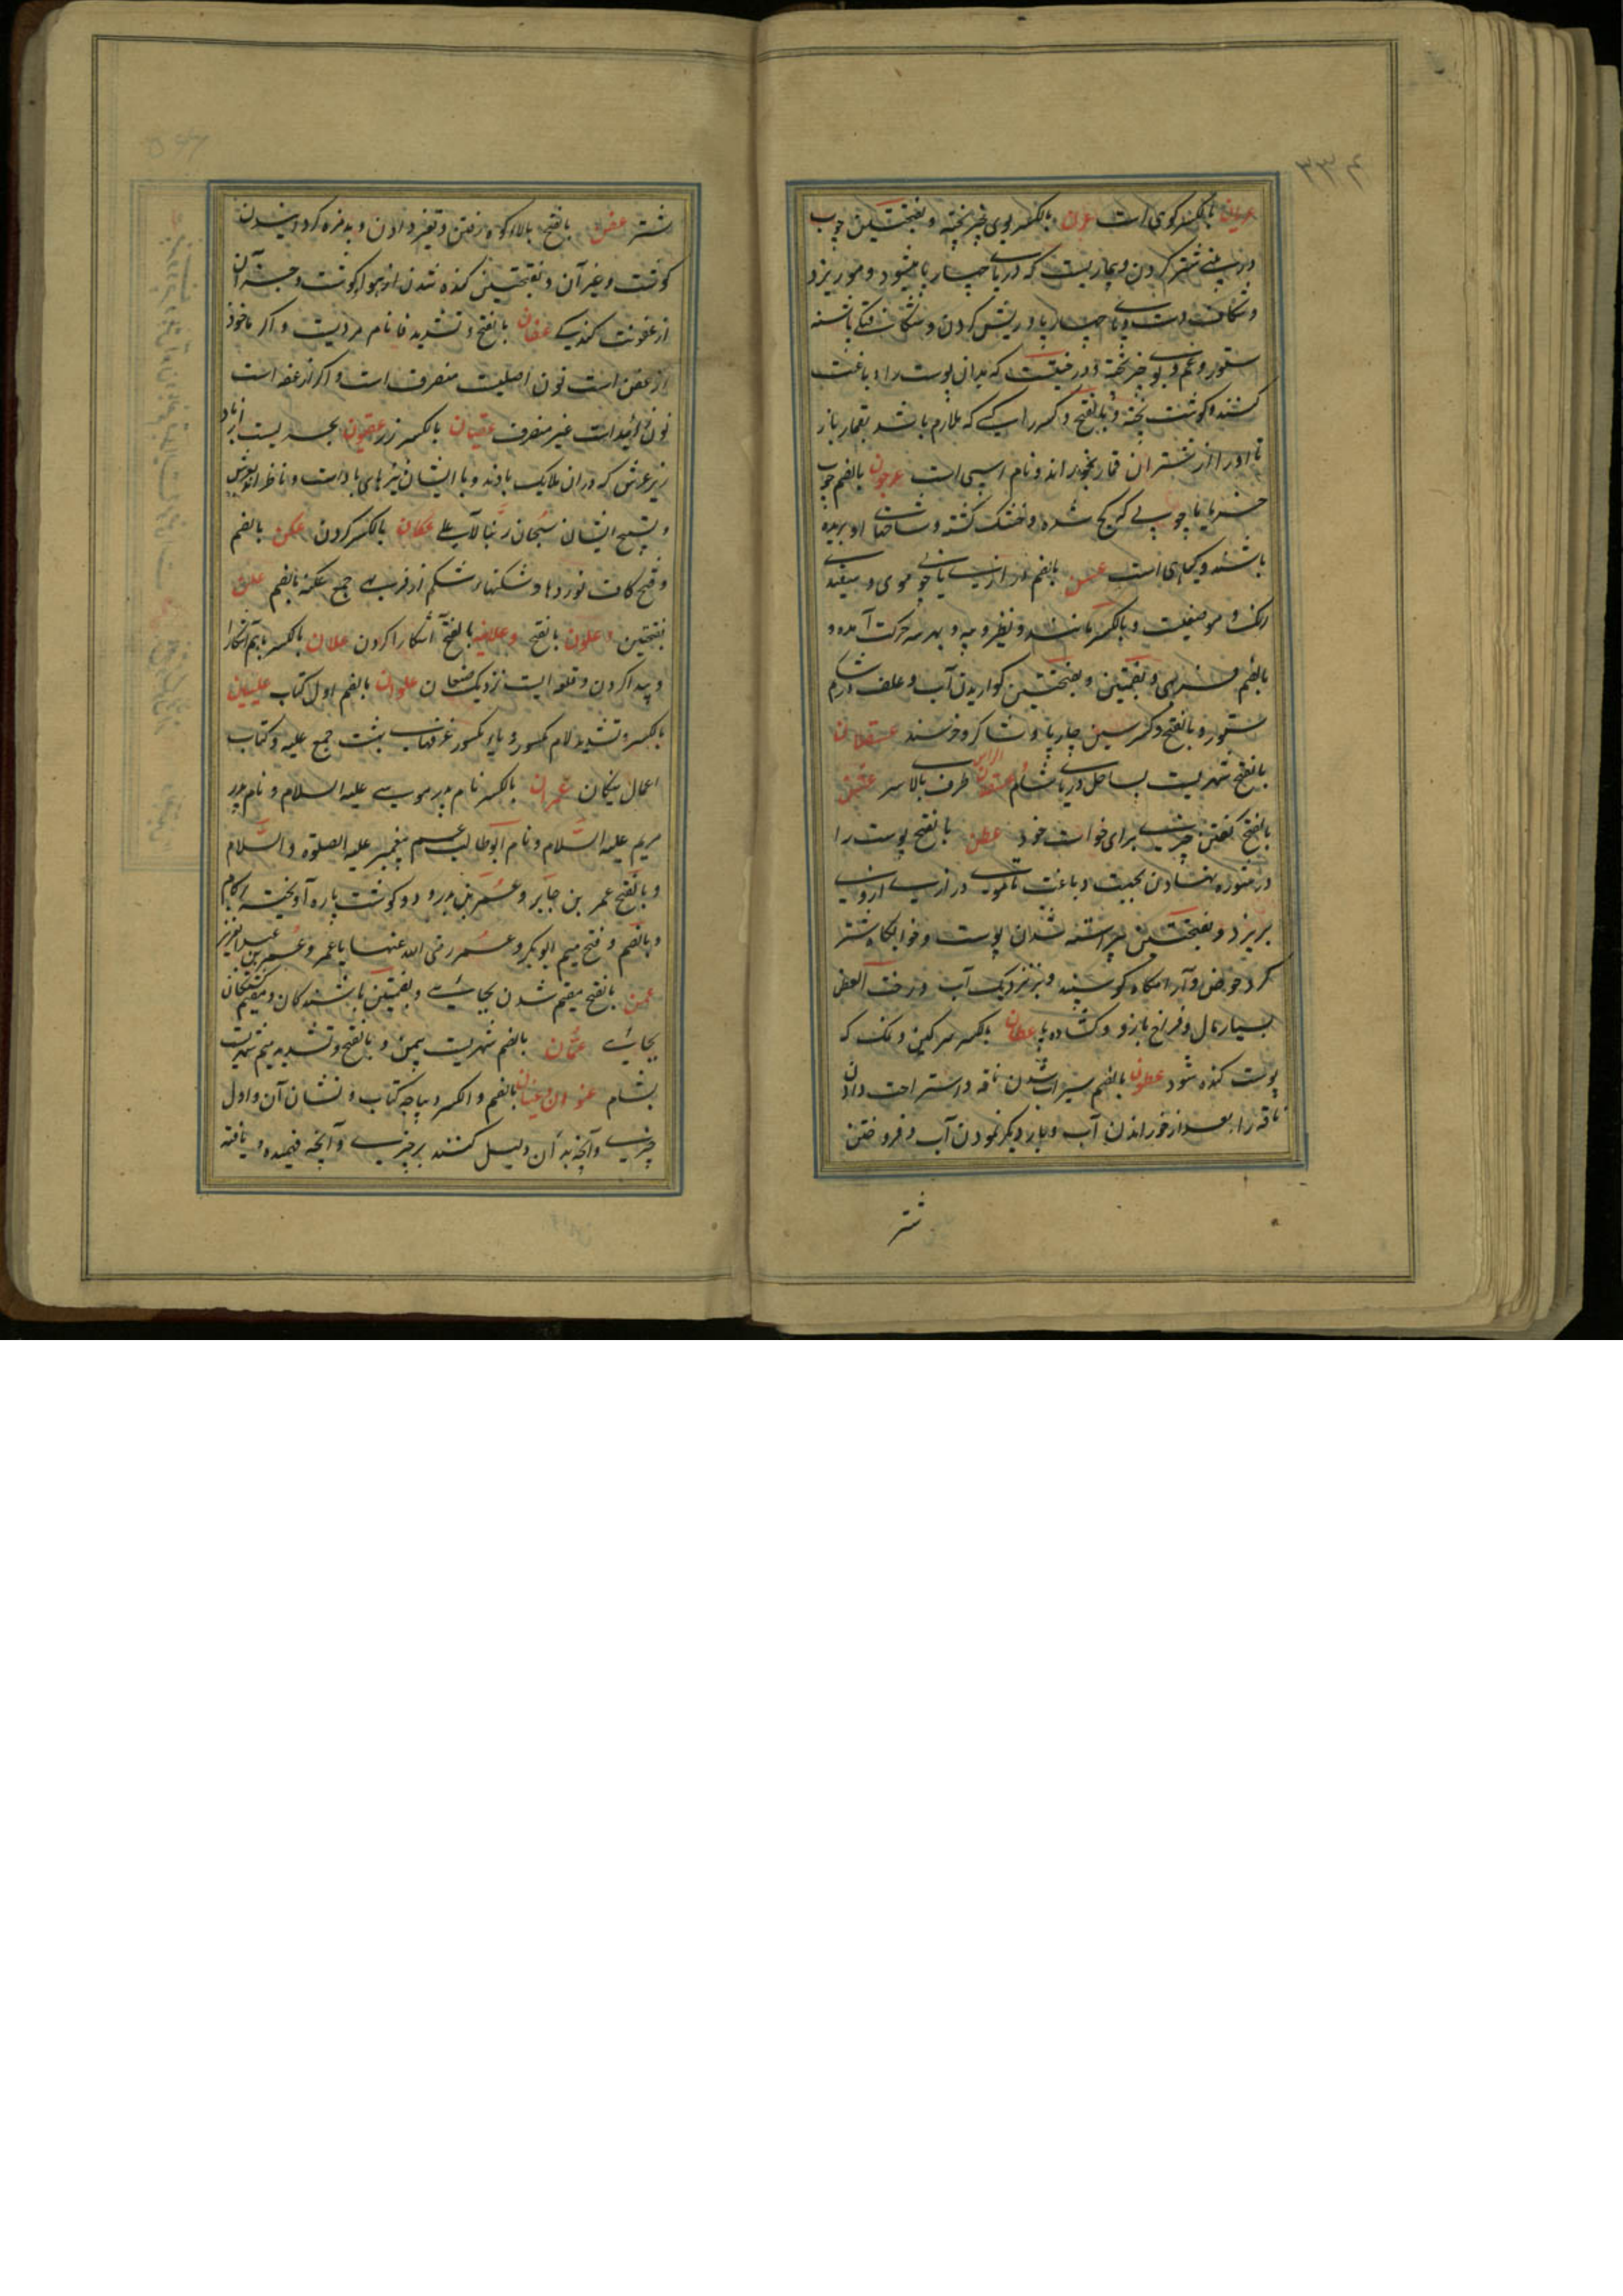 عریان بالکسر کوی است عرن بالکسر بوی خر پخته و بفتحتین چوب
در بینی شتر کردن و بیماریست که در پای چهار پا میشود و مو ریزد
و شکاف دست و پای چهار پا و ریش کردن و شکافتگی پاشنه
ستور و غم و بوی خر پخته و درختیست که بدان پوست را دباغت
کنند و گوشت پخته و بالفتح و کسر را کسی که ملازم باشد بقمار باز
تا او را از شتران قمار بخوراند و نام اسپی است عرجون بالضم چوب
خرما یا چوبی که کج شده و خشک گشته و شاخهای او بریده
باشند و گیاهی است عسن بالضم درازی با خوبی موی و سفیدی
رنک و موضعیست و بالکسر مانند و نظیر و پیه و بهر سه حرکت آمده و
بالضم فربهی و بضمتین و بفتحتین گواریدن آب و علف در شکم
ستور و بالفتح و کسر سین چارپا و شاکر و خرسند عسقلان
بالفتح شهریست بساحل دریای شام الراس طرف بالای سر عشن
بالفتح گفتن چیزی برای خواست خود عطن بالفتح پوست را
در شوره نهادن بجهت دباغت تا موی درازی از وی
بریزد و بفتحتین پیراسته شدن پوست و خوابگاه شتر
گرد حوض و آرامگاه گوسپند و بز نزدیک آب و رحب العطن
بسیار مال و فراخ بازو و گشاده پا عطان بالکسر سرگین و نمک که
پوست کنده شود عطون بالضم سیراب شدن ناقه و استراحت دادن
ناقه را بعد از خوراندن آب و بار دیگر نمودن آب و فرو خفتن
شتر
شتر عفن بالفتح بالای کوه رفتن و تغیر دادن و بدمزه کردانیدن
گوشت و غیر آن و بفتحتین گنده شدن از هوا گوشت و جز آن
از عفونت گندگی عفان بالفتح و تشدید فا نام مردیست و اگر ماخوذ
از عفن است نون اصلیست منصرف است و اگر از عفه است
نون زایدست غیر منصرف عقیان بالکسر زر عقیون بحریست از باد
زیر عرش که در آن ملایک بادند و با ایشان نیزهای بادست و ناظر اند بعرش
و تسبیح ایشان سبحان ربنا الاعلی عکان بالکسر گردن عکن بالضم
و فتح کاف نوردها و شکنهای شکم از فربهی جمع عکنه بالضم علن
بفتحتین و علون بالفتح و علانیه بالفتح آشکارا کردن علان بالکسر باهم آشکارا
و پیدا کردن و قلعه ایست نزدیک صنعا ن علوان بالضم اول کتاب علیین
بالکسر و تشدید لام مکسور و یای مکسور غرفهای بهشت جمع علیه و کتاب
اعمال نیکان عمران بالکسر نام پدر موسی علیه السلام و نام پدر
مریم علیه السلام و نام ابوطالب عم پیغمبر علیه الصلوة و السلام
و بالفتح عمر بن جابر و عمر بن بدر و دو گوشت پاره آویخته از کام
و بالضم و فتح میم ابوبکر و عمر رضی الله عنهما یا عمر و عمر بن عبدالعزیز
عمن بالفتح مقیم شدن بجائی و بضمتین باشندگان و مقیم گشتگان
بجائی عمان بالضم شهریست بیمن و بالفتح و تشدید میم شهریست
بشام عنوان و عنیان بالضم و الکسر دیباچه کتاب و نشان آن و اول
چیزی و آنچه بدان دلیل کنند بر چیزی و آنچه فهمیده و یافته